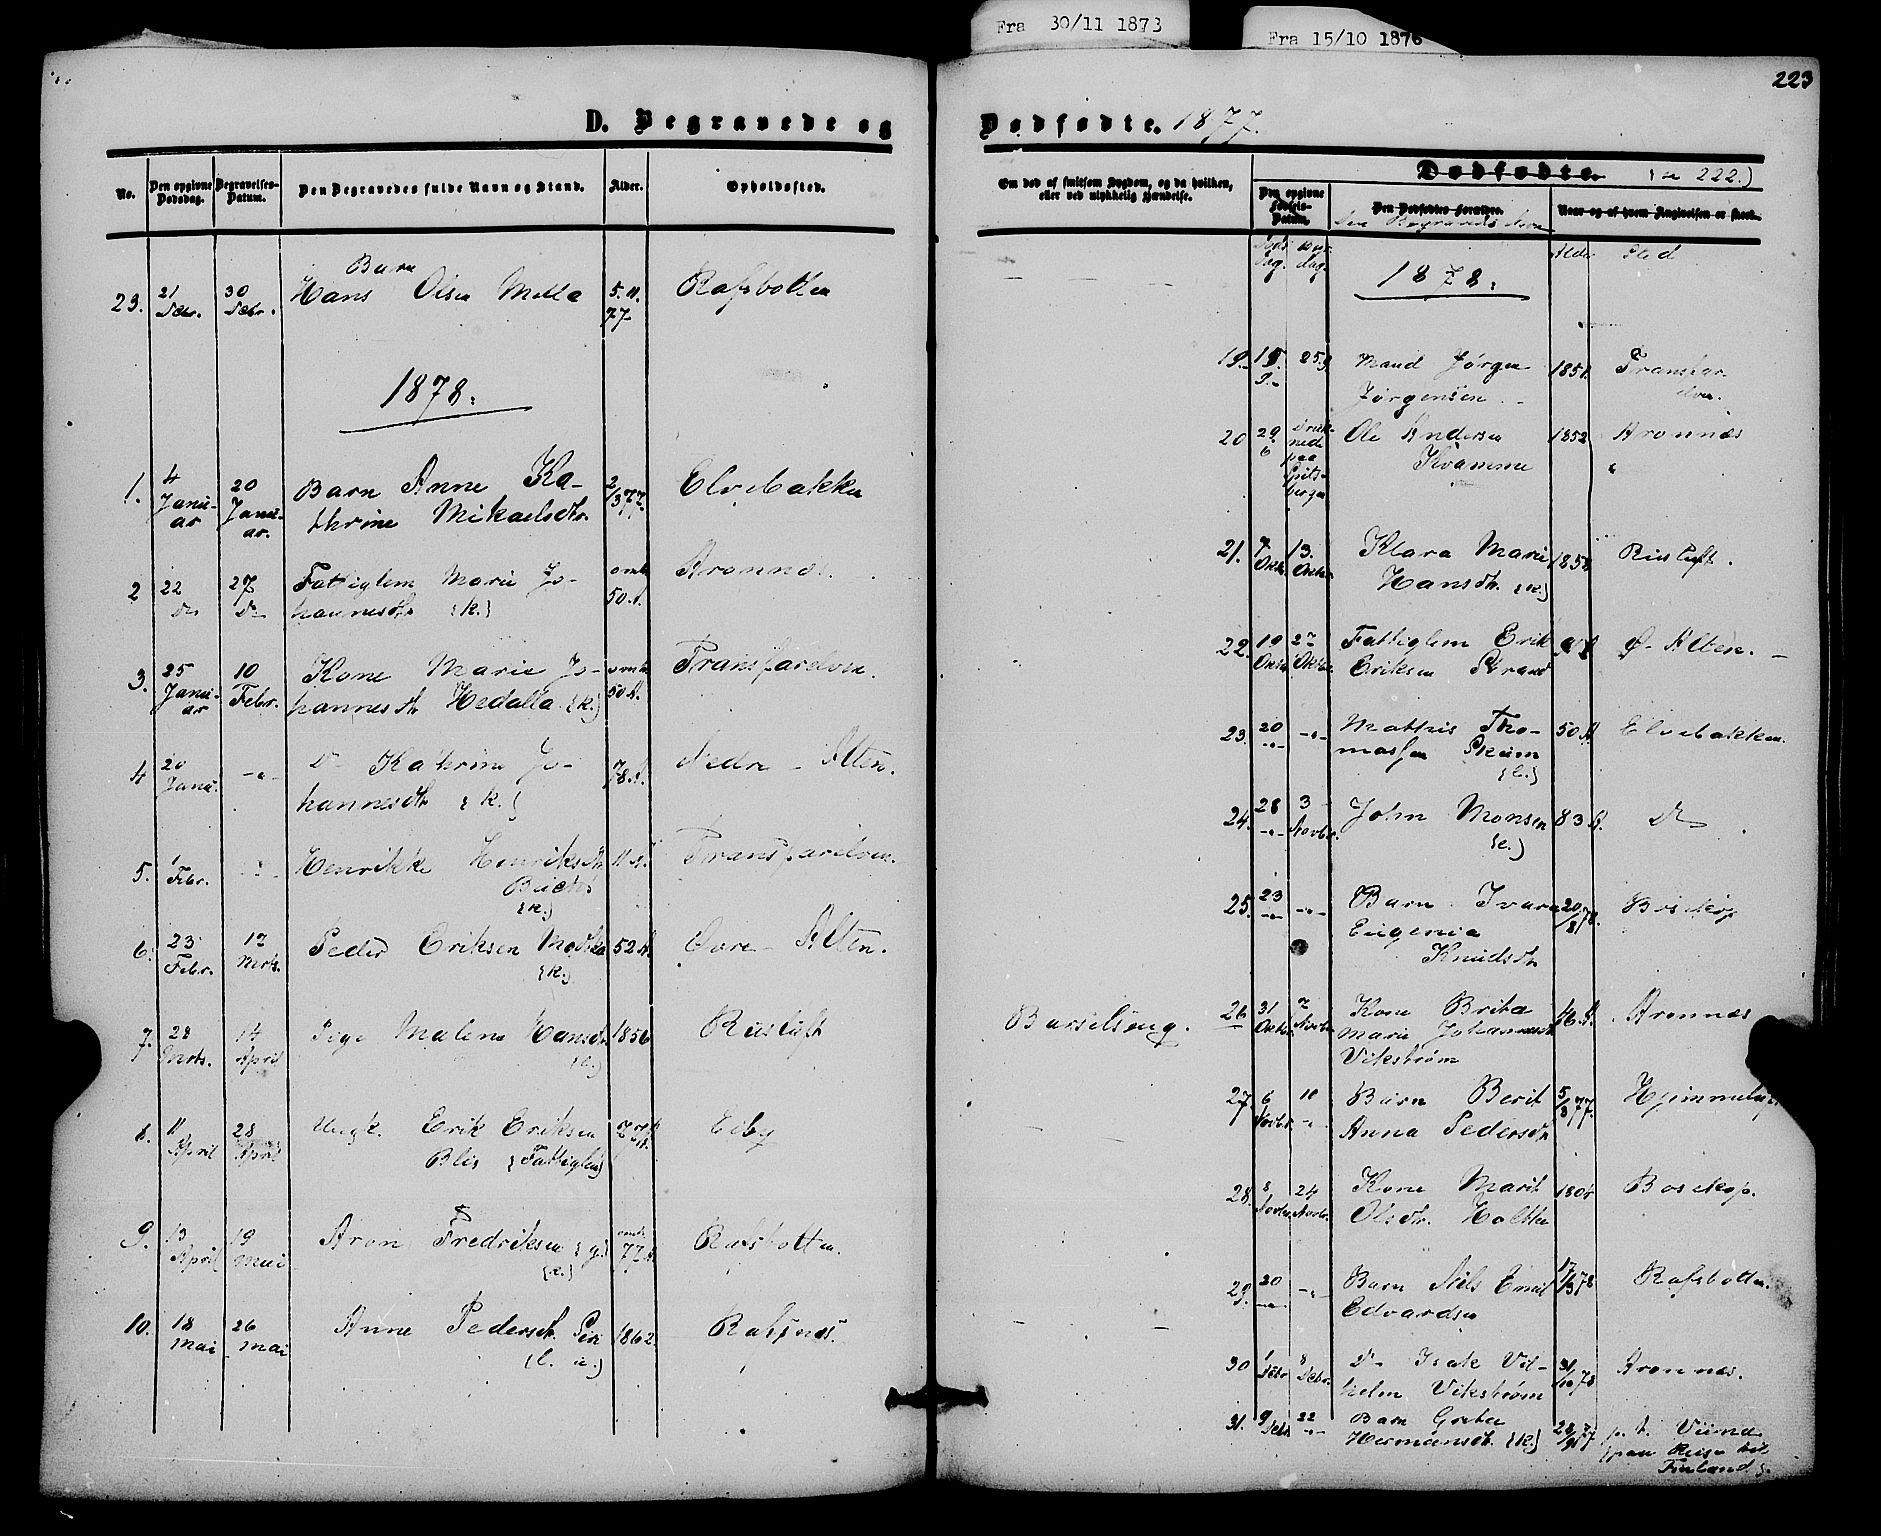 Fra 30/11 1873
Fra 15/10 1876
223
D. Begravede og
No.
Den opgivne Dødsdag.
Begravelses-Datum.
Den Begravedes fulde Navn og Stand.
Alder.
Opholdssted.
23. 21 Decbr. 30 Decbr. Barn Hans Olsen 5. 11. 77 Rafsbotten
1878.
1. 4 Januar 20 Januar. Barn Anne Ka-
thrine Mikaelsdtr. 2/3 77. Elvebakken
2 22 27 Fattiglem Marie Jo-
hannesdtr {k.} omtr. 50 A. Aronnæs.
3. 25 Januar 10 Febr. Kone Marie Jo-
hannesdtr Hedalla {k.} omtr. 50 A. Transfarelven.
4 20 Janu. -"- Do Kathrine Jo-
hannesdtr {k.} 78 A. Nedre-Alten.
5. 1 Febr. -"- Henrikke Henriksdtr
{k.} 11 A. Transfarelven.
6. 23 Febr. 17 Marts. Peder Eriksen
{k.} 52 A. Øvre-Alten.
7. 28 Marts. 14 April Pige Malene Hansdtr 1856 Rusluft
8. 11 April 28 April Ungk. Erik Eriksen
{Fattiglem} Eiby
9. 13 April 19 Mai Aron Fredriksen {g.}
{k.} omtr. 77 A. Rafsbotten.
10. 18 Mai 26 Mai Anne Pedersdtr. 1862. Rafsnæs.
Dødfødte. 1877.
Om død af smitsom Sygdom, og da hvilken,
eller ved ulykkelig Hændelse.
Dødfødte. 222.)
Den opgivne Fødsels-Datum.
Den Dødfødtes Forældre.
Naar og af hvem Angivelsen er skeet.
Den Begravedes Navn
Døds Dag. Alder Sted
1878.
19. 15. 9. 25.9 Mand Jørgen
Jørgensen 1851. Transfar-
elven.
20 29 6 Druk-
nede
paa
Spits-
bergen Ole Andersen
Kvamme 1852 Aronnæs
21. 7 Oktbr. 13. Oktbr. Klara Marie
Hansdtr. {k.} 1858 Rusluft.
22. 19 Oktbr. 27 Oktbr. Fattiglem Erik
Eriksen Strand Ø-Alten.
23. 20 -"- -"- Mathis Tho-
massen 50 A. Elvebakken.
24. 28 -"- 3 Novbr. John Monsen 83 A. Do
25. 23 -"- -"- Barn Ivara
Eugenia
Knudsdtr 20/8 78. Bosekop
Barselseng. 26 31 Oktbr. 7 Novbr. Kone Brita
Marie Johannesdtr
Vikstrøm 46 A. Aronnæs
27 6 Novbr. 10 -"- Barn Berit
Anna Pedersdtr 5/8 77. Hjemmeluft
28. 8 Novbr. 24 Novbr. Kone Marit
Olsdtr. Holthe 1804 Bosekop.
29. 20 -"- -"- Barn Nils Emil
Edvardsen 17/3 78 Rafsbotten.
30 1 Decbr 8 Decbr. Do Isak Vil-
helm Vikstrøm 31/10 78 Aronnæs.
31. 9 Decbr 22 -"- Barn Grethe
Hermansdtr. {k.} p. t.
paa Reise til
Finland.